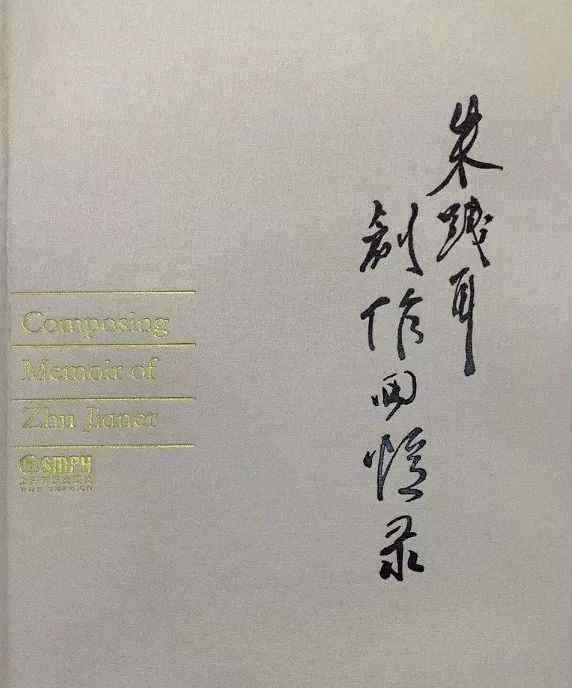 朱践耳
创作回忆录
Composing
Memoir of
Zhu Jianer
SMPH